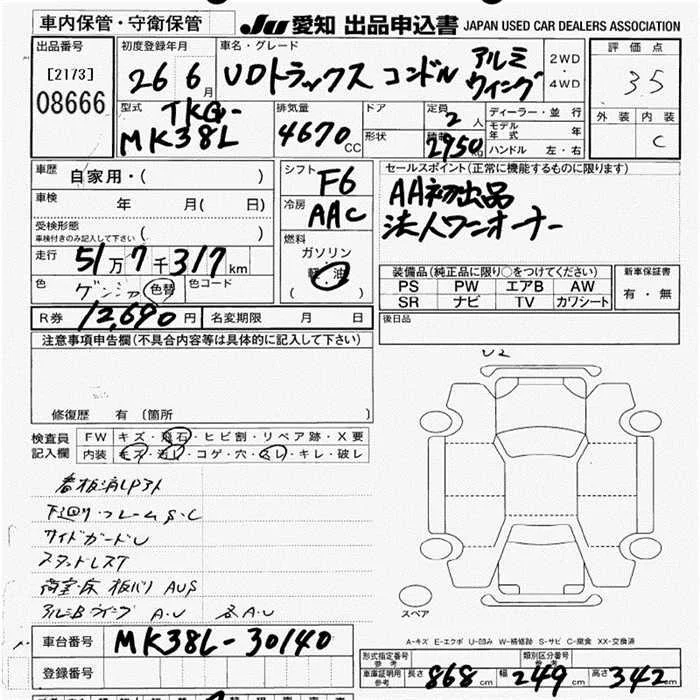 車内保管・守衛保管 JU 愛知 出品申込書 JAPAN USED CAR DEALERS ASSOCIATION
出品番号 初度登録年月 車名・グレード 評価点
[2173] 26 6月 UDトラックス コンドル アルミウィング 2WD・4WD 3.5
08666 型式 排気量 ドア 定員 ディーラー・並行 外装 内装
TKG-MK38L 4670CC 形状 2人 積載 2950kg モデル年式 年 ハンドル 左・右 C
車歴 自家用・( ) シフト F6 セールスポイント(正常に機能するものに限ります)
車検 年 月( 日) 冷房 AAC AA初出品
受検形態 車検付きのみ記入して下さい ( ) 法人ワンオーナー
走行 51万7千317km 燃料 ガソリン・軽油 ( )
色 色替 色コード 装備品(純正品に限り○をつけてください) 新車保証書
PS PW エアB AW 有・無
SR ナビ TV カワシート
R券 12,690円 名変期限 月 日 後日品
注意事項申告欄(不具合内容等は具体的に記入して下さい)
修復歴 有(箇所 )
検査員記入欄 FW キズ・飛石・ヒビ割・リペア跡・X要
内装 キズ・汚レ・コゲ・穴・スレ・キレ・破レ
下廻り・フレームS・C
サイドガードU
スタッドレスT
荷室・床 板バリ AUS
アルミBウイング A・U
スペア
A-キズ E-エクボ U-凹み W-補修跡 S-サビ C-腐食 XX-交換済
車台番号 MK38L-30140
登録番号
形式指定番号 参考 類別区分番号 参考
車庫証明用 参考 長さ 868cm 幅 249cm 高さ 342cm